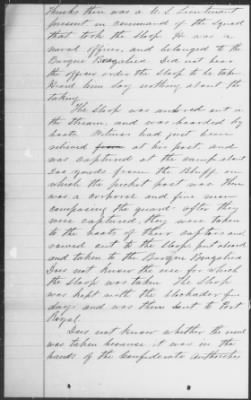 thinks there was a U S Lieutenant
present in command of the squad
that took the Sloop. He was a
naval officer, and belonged to the
Barque Braziliera. Did not hear
the officer order the Sloop to be taken
Heard him say nothing about the
taking.
The Sloop was anchored out in
the stream, and was boarded by
boats. Witness had just been
relieved from at his post, and
was captured at the camp about
200 yards from the Bluff on
which the picket post was. There
was a corporal and five men
composing the guard. After they
were captured, they were taken
to the boats of their captors and
carried out to the Sloop, put aboard
and taken to the Barque Braziliera
Does not know the use for which
the Sloop was taken. The Sloop
was kept with the blockader five
days and was then sent to Port
Royal.
Does not know whether the vessel
was taken because it was in the
hands of the Confederate Authorities